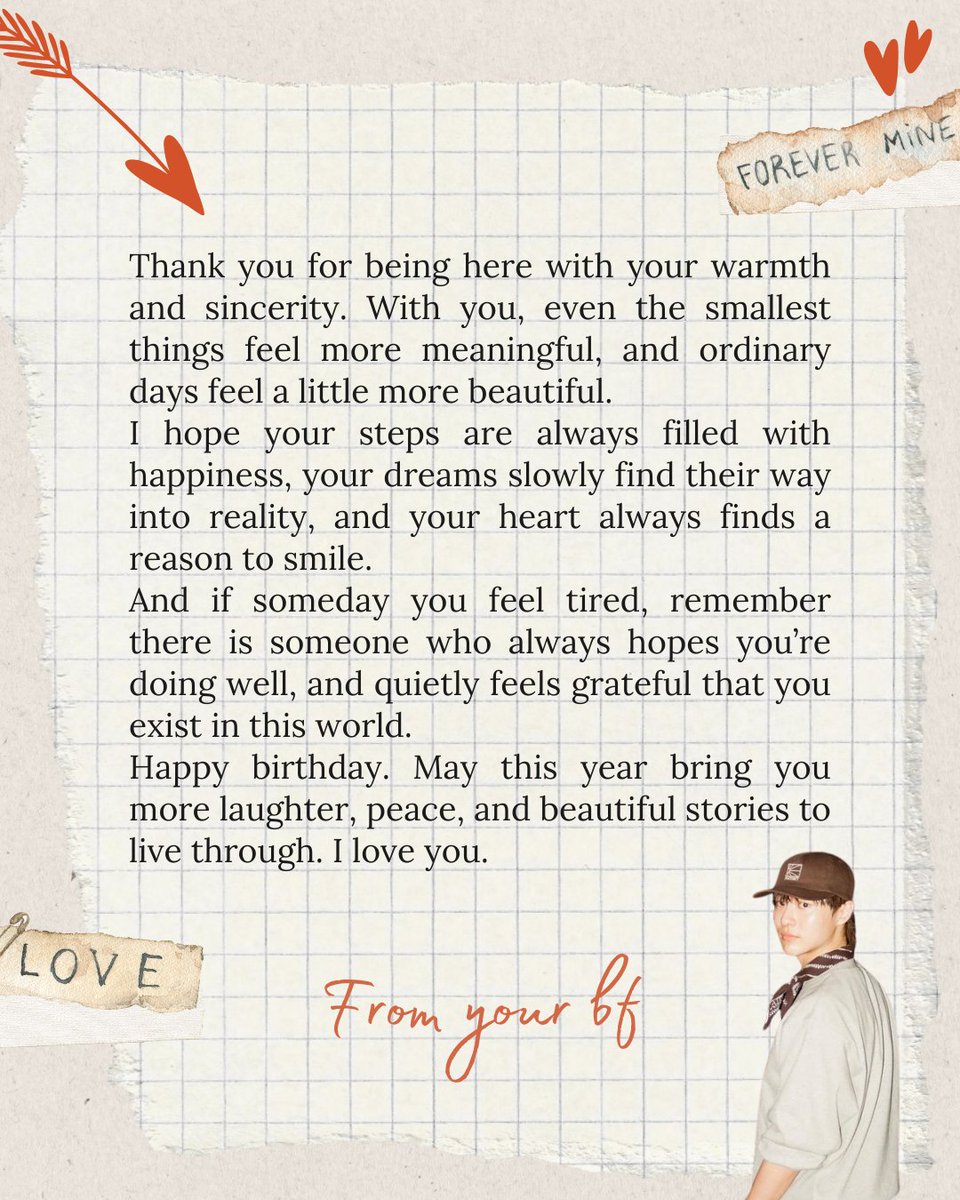 FOREVER MINE
Thank you for being here with your warmth
and sincerity. With you, even the smallest
things feel more meaningful, and ordinary
days feel a little more beautiful.
I hope your steps are always filled with
happiness, your dreams slowly find their way
into reality, and your heart always finds a
reason to smile.
And if someday you feel tired, remember
there is someone who always hopes you’re
doing well, and quietly feels grateful that you
exist in this world.
Happy birthday. May this year bring you
more laughter, peace, and beautiful stories to
live through. I love you.
LOVE
From your bf